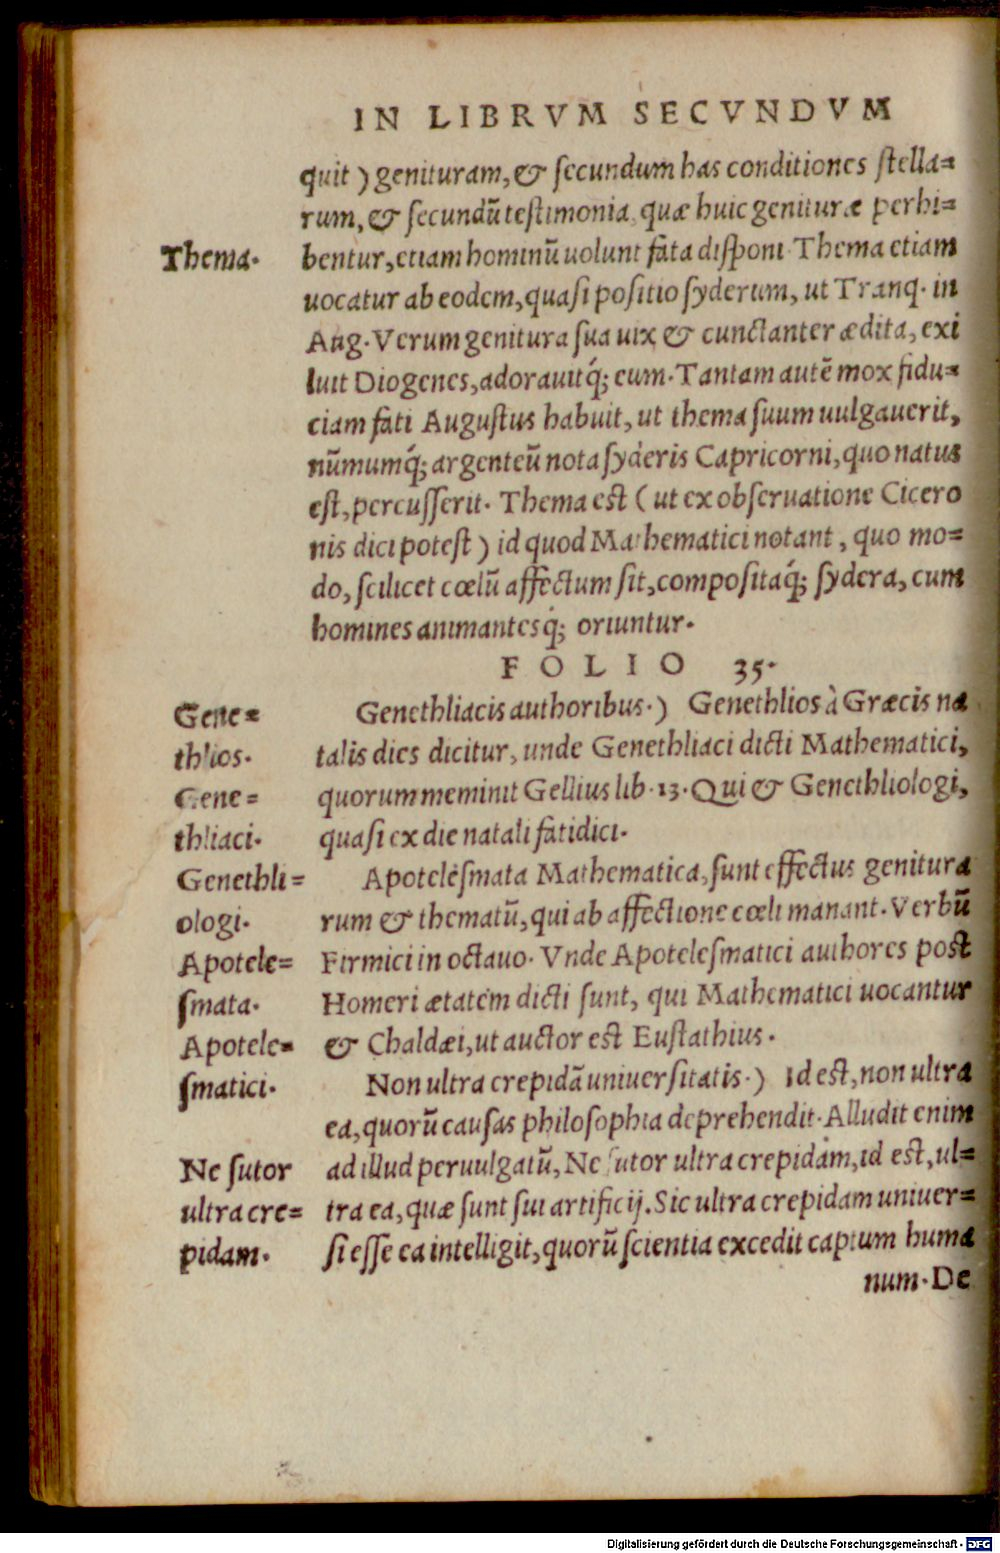 IN LIBRVM SECVNDVM
quit ) genituram, & secundum has conditiones stella=
rum, & secundũ testimonia quæ huic genituræ perhi=
Thema.
bentur, etiam hominũ uolunt fata disponi. Thema etiam
uocatur ab eodem, quasi positio syderum, ut Tranq. in
Aug. Verum genitura sua uix & cunctanter ædita, exi
luit Diogenes, adorauitq́; eum. Tantam autẽ mox fidu=
ciam fati Augustus habuit, ut thema suum uulgauerit,
nũmumq́; argenteũ nota syderis Capricorni, quo natus
est, percusserit. Thema est ( ut ex obseruatione Cicero
nis dici potest ) id quod Mathematici notant, quo mo=
do, scilicet cœlũ affectum sit, compositaq́; sydera, cum
homines animantesq́; oriuntur.
FOLIO 35.
Gene=
thlios.
Gene=
thliaci.
Genethli=
ologi.
Apotele=
smata.
Apotele=
smatici.
Genethliacis authoribus.) Genethlios à Græcis na
talis dies dicitur, unde Genethliaci dicti Mathematici,
quorum meminit Gellius lib. 13. Qui & Genethliologi,
quasi ex die natali fatidici.
Apotelésmata Mathematica, sunt effectus genitura
rum & thematũ, qui ab affectione cœli manant. Verbũ
Firmici in octauo. Vnde Apotelesmatici authores post
Homeri ætatem dicti sunt, qui Mathematici uocantur
& Chaldæi, ut auctor est Eustathius.
Non ultra crepidã uniuersitatis.) Id est, non ultra
ea, quorũ causas philosophia deprehendit. Alludit enim
Ne sutor
ultra cre=
pidam.
ad illud peruulgatũ, Ne sutor ultra crepidam, id est, ul=
tra ea, quæ sunt sui artificij. Sic ultra crepidam uniuer=
si esse ea intelligit, quorũ scientia excedit captum huma
num. De
Digitalisierung gefördert durch die Deutsche Forschungsgemeinschaft - DFG